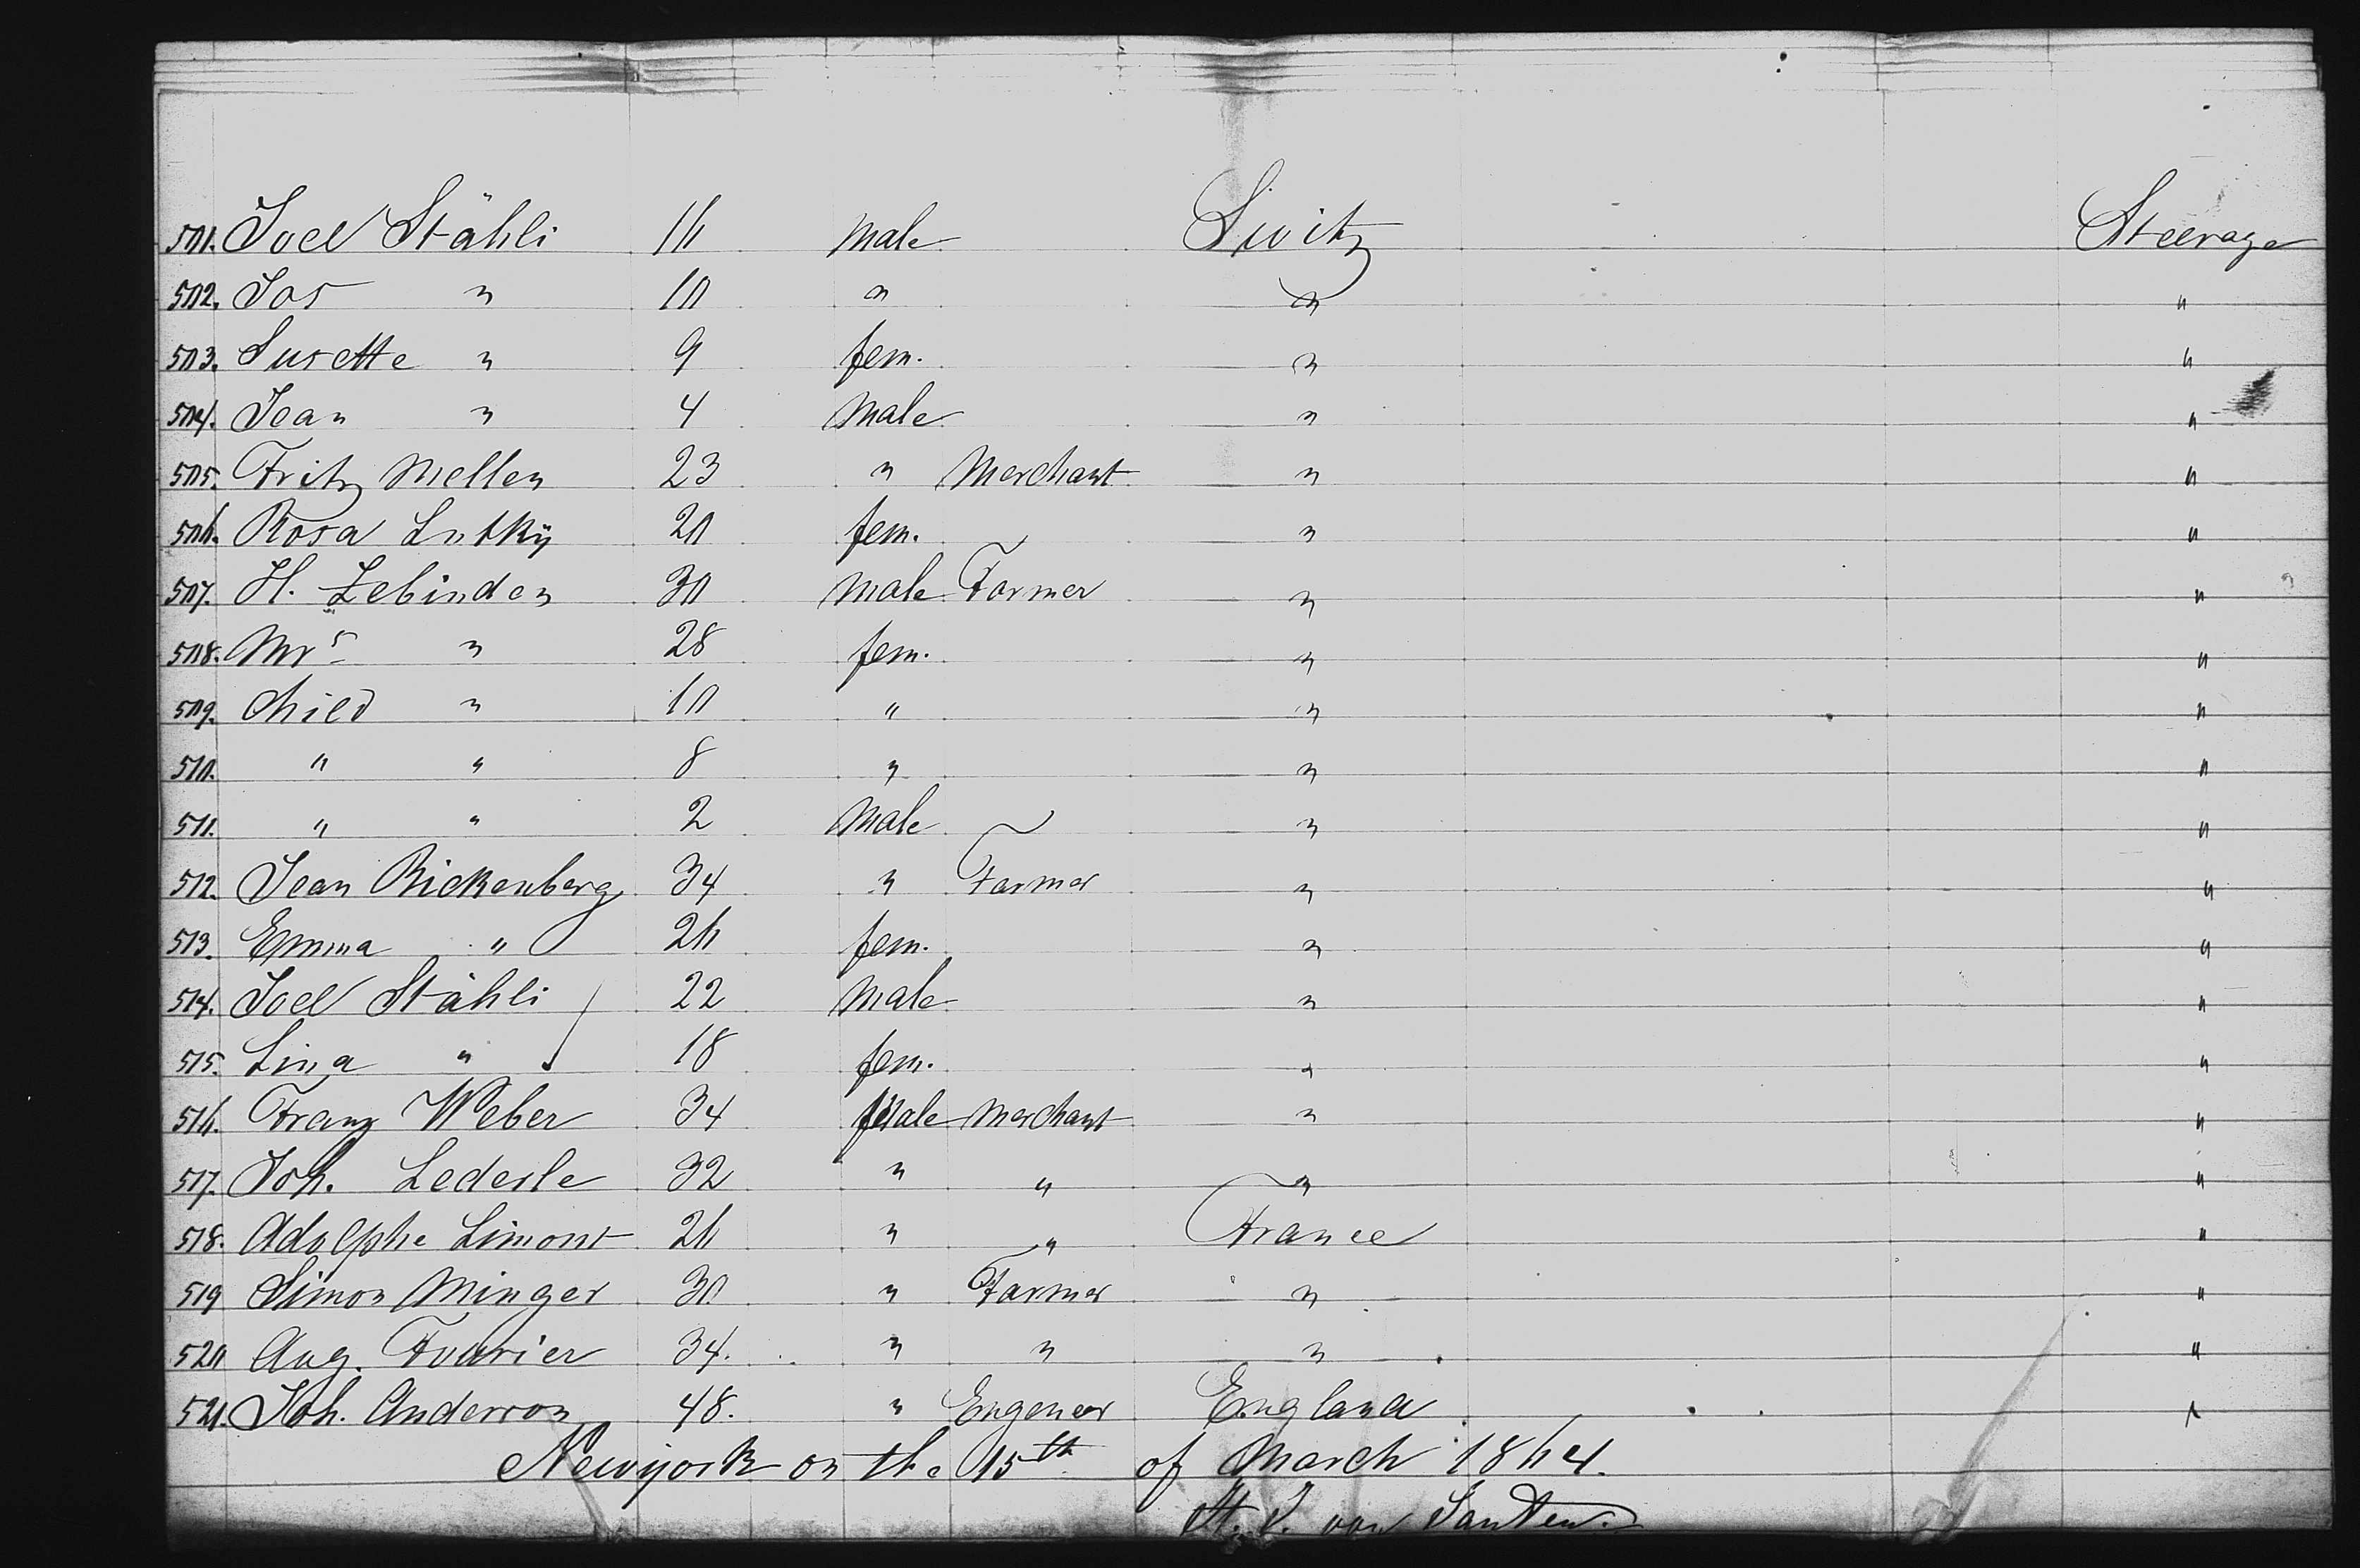 501. Joel Stähli 16 male Switz Steerage
502. Jos " 10 " " "
503. Susette " 9 fem. " "
504. Jean " 4 male " "
505. Fritz Mellen 23 " Merchant " "
506. Rosa Lutky 20 fem. " "
507. H. Zebinden 30 male Farmer " "
508. Mrs " 28 fem. " "
509. Child " 10 " " "
510. " " 8 " " "
511. " " 2 male " "
512. Jean Rickenberg 34 " Farmer " "
513. Emma " 26 fem. " "
514. Joel Stähli 22 male " "
515. Lina " 18 fem. " "
516. Franz Weber 34 male Merchant " "
517. Joh. Lederle 32 " " " "
518. Adolphe Limont 26 " " France "
519 Simon Minger 30. " Farmer " "
520 Aug. Fourier 34. " " " "
521. Joh. Anderson 48. " Engeneer England "
Newyork on the 15th of March 1864.
H. J. von Santen.